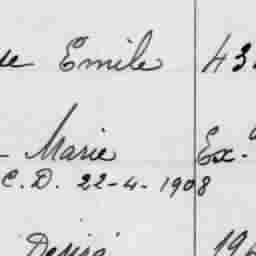 Emile 43
Marie Ex.
C.D. 22-4-1908
Désiré 196